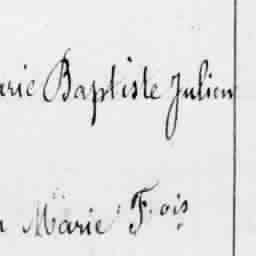 arie Baptiste Julien
n Marie F.ois